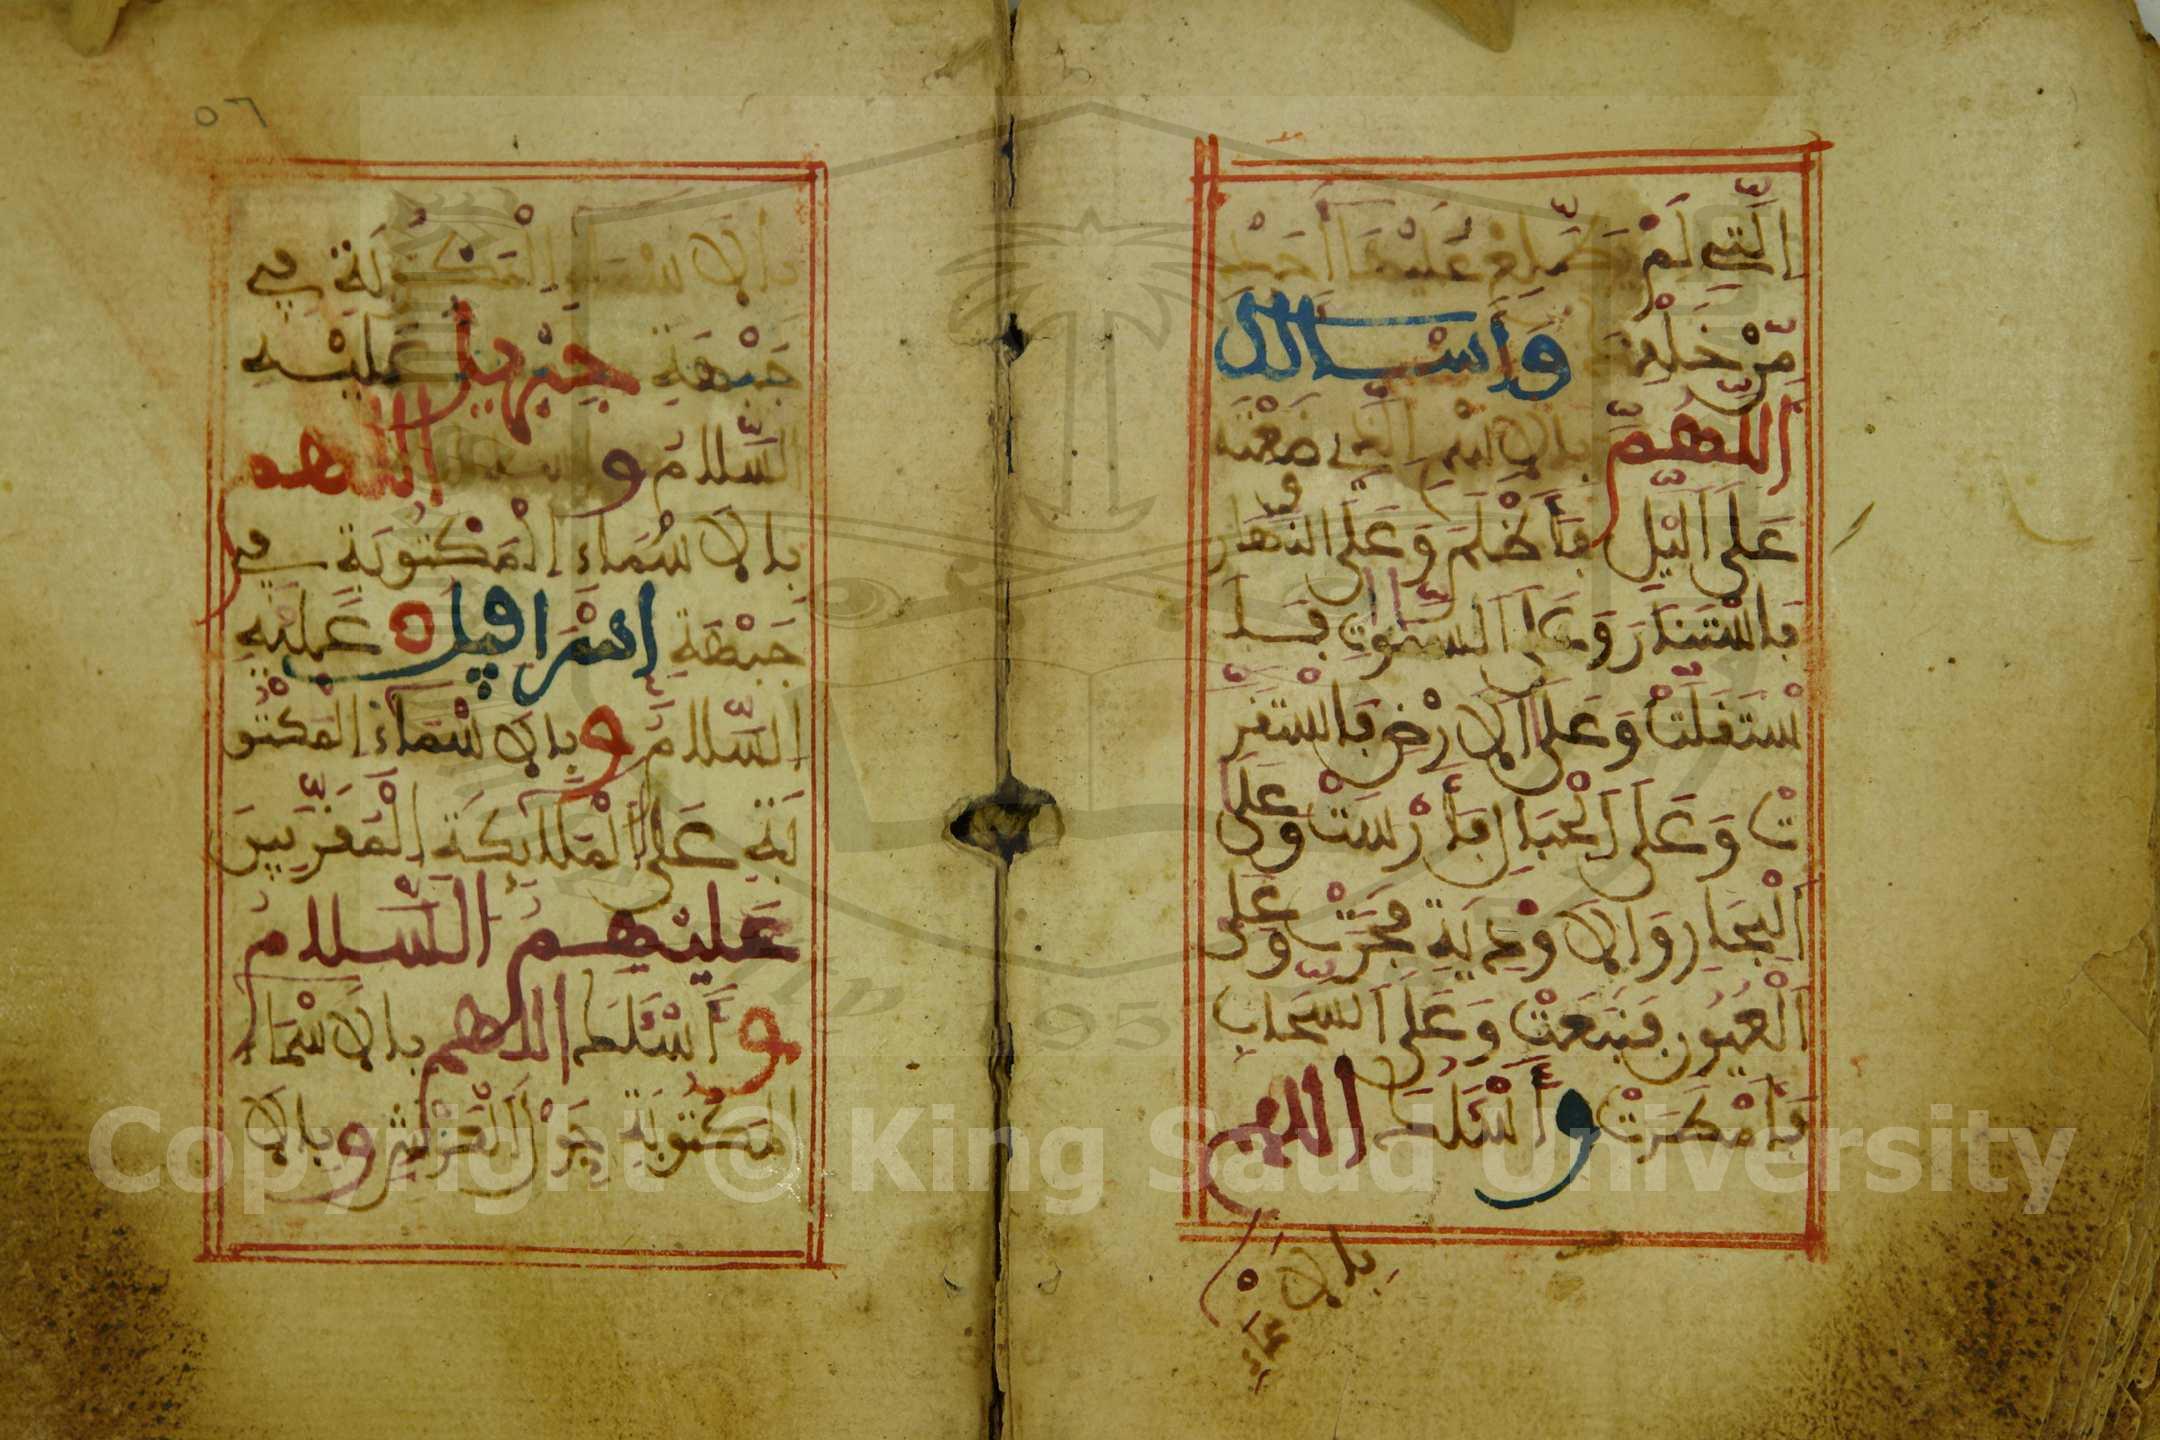 الَّتِي لَمْ يَطَّلِعْ عَلَيْهَا أَحَدٌ
مِّنْ خَلْقِكَ وَأَسْـَٔالُكَ
اللَّهُمَّ بِالاِسْمِ الَّذِي وَضَعْتَهُ
عَلَى اَلَّيْلِ فَأَظْلَمَ وَعَلَى النَّهَارِ
فَاسْتَنَارَ وَعَلَى السَّمَوَاتِ فَـا
سْتَقَلَّتْ وَعَلَى اَلاَرْضِ فَاسْتَقَرَّ
تْ وَعَلَى اَلْجِبَالِ فَأَرْسَتْ وَعَلَى
اَلْبِحَارِ وَالاَوْدِيَةِ فَجَرَتْ وَعَلَى
اَلْعُيُونِ فَنَبَعَتْ وَعَلَى اَلسَّحَابِ
فَأَمْطَرَتْ وَأَسْـَٔلُكَ اللهم
بالاسْمَاءِ
٥٦
بالاسْمَاءِ الْمَكْتُوبَةِ فِي
جَبْهَةِ جِبْرِيلَ عَلَيْهِ
السَّلَامُ وأسئلك اللهم
بالاسْمَاءِ الْمَكْتُوبَةِ فِي
جَبْهَةِ إِسْرَافِيلَ عَلَيْهِ
السَّلَامُ وبالاسْمَاءِ الْمَكْتُو
بَةِ عَلَى الْمَلَائِكَةِ الْمُقَرَّبِينَ
عَلَيْهِمُ السَّلَامُ
وأَسْـَٔلُكَ اللهم بالاسْمَاءِ
الْمَكْتُوبَةِ حَوْلَ الْعَرْشِ وبالا
Copyright © King Saud University